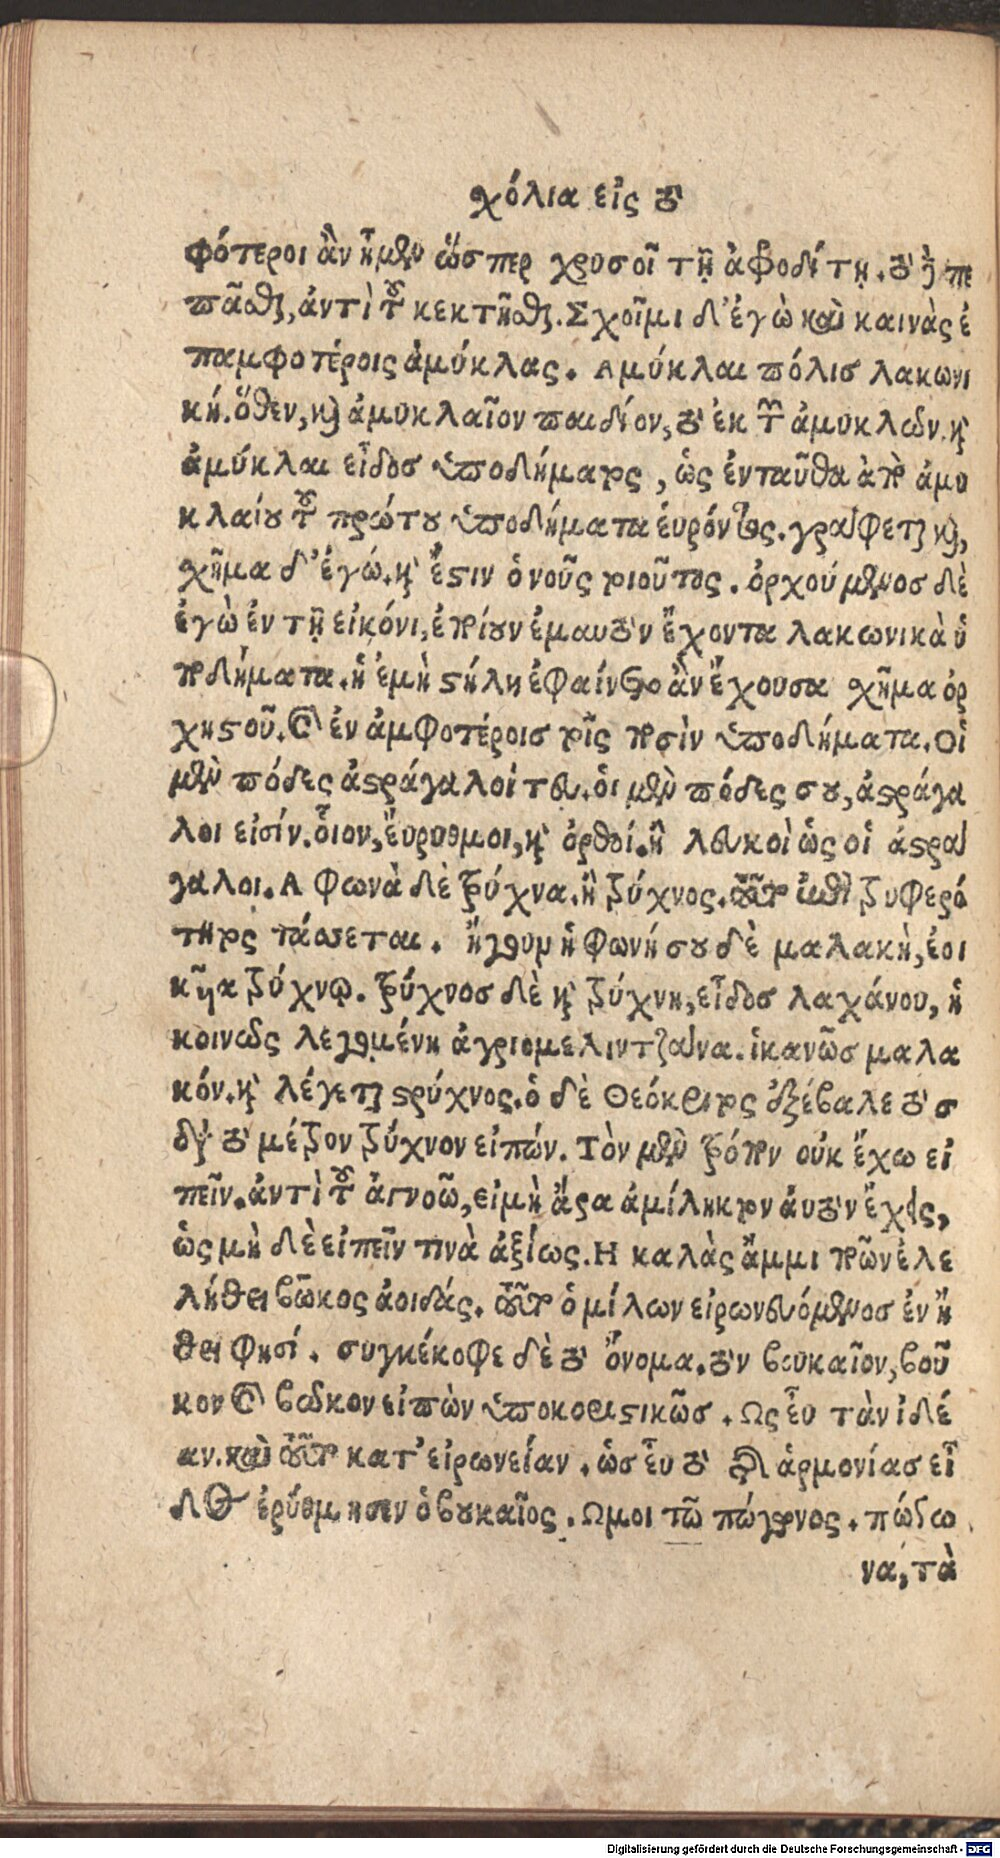 χόλια εἰς τὸ
φότεροι ἂν ἦμεν ὥσπερ χρυσοῖ τῇ ἀφροδίτῃ. τὸ δὲ πε
πᾶσθαι, ἀντὶ τοῦ κεκτῆσθαι. Σχοῖμι δ' ἐγὼ καὶ καινὰς ἐ
παμφοτέροις ἀμύκλας. Αμύκλαι πόλισ λακωνι
κή. ὅθεν, καὶ ἀμυκλαῖον παιδίον, τὸ ἐκ τῶν ἀμυκλῶν. καὶ
ἀμύκλαι εἶδοσ ὑποδήματος, ὡς ἐνταῦθα ἀπὸ ἀμυ
κλαίου τοῦ πρώτου ὑποδήματα ἑυρόντος. γράφεται καὶ,
χῆμα δ' ἐγώ. καὶ ἔστιν ὁ νοῦς τοιοῦτος. ὀρχούμενοσ δὲ
ἐγὼ ἐν τῇ εἰκόνι, ἐποίουν ἐμαυτὸν ἔχοντα λακωνικὰ ὑ
ποδήματα. ἡ ἐμὴ στήλη ἐφαίνετο ἂν ἔχουσα χῆμα ὀρ
χηστοῦ. καὶ ἐν ἀμφοτέροισ τοῖς ποσὶν ὑποδήματα. Οἱ
μὲν πόδες ἀστράγαλοί τευ. ὁι μὲν πόδες σου, ἀστράγα
λοι εἰσίν. ὅιον, ἔυρυθμοι, καὶ ὀρθοί. ἢ λευκοὶ ὡς οἱ ἀστρά
γαλοι. Α φωνὰ δὲ τρύχνα. ἢ τρύχνος. τοῦτο ἐπὶ τρυφερό
τητος τάσσεται. ἤγουν ἡ φωνή σου δὲ μαλακὴ, ἐοι
κῆα τρύχνῳ. τρύχνοσ δὲ καὶ τρύχνη, εἶδοσ λαχάνου, ἡ
κοινῶς λεγομένη ἀγριομελιντζάνα. ἱκανῶσ μαλα
κόν. καὶ λέγεται στρύχνος. ὁ δὲ Θεόκριτος ἐξέβαλε τὸ σ
διὰ τὸ μέτρον τρύχνον εἰπών. Τὸν μὲν τρόπον οὐκ ἔχω εἰ
πεῖν. ἀντὶ τοῦ ἀγνοῶ, εἰ μὴ ἄρα ἀμίλητον ἀυτὸν ἔχεις,
ὡς μὴ δὲ εἰπεῖν τινὰ ἀξίως. Η καλὰς ἄμμι ποῶν ἐλε
λήθει βῶκος ἀοιδάς. τοῦτο ὁ μίλων εἰρωνευόμενοσ ἐν ἤ
θει φησί. συγκέκοφε δὲ τὸ ὄνομα. τὸν βουκαῖον, βοῦ
κον καὶ βῶκον εἰπὼν ὑποκοριστικῶσ. Ως ἐυ τὰν ἰδέ
αν. καὶ τοῦτο κατ' εἰρωνείαν. ὡσ ἐυ τὸ τῆς ἁρμονίασ εἶ
δος ἐρύθμησεν ὁ βουκαῖος. Ωμοι τῶ πώγωνος. πώδω
να, τὰ
Digitalisierung gefördert durch die Deutsche Forschungsgemeinschaft - DFG